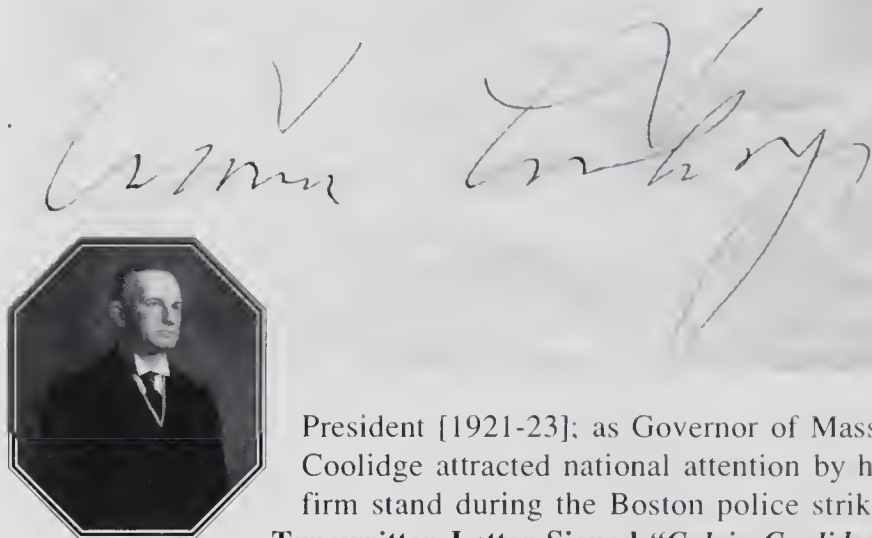 Calvin Coolidge
President [1921-23]; as Governor of Mass
Coolidge attracted national attention by h
firm stand during the Boston police strik